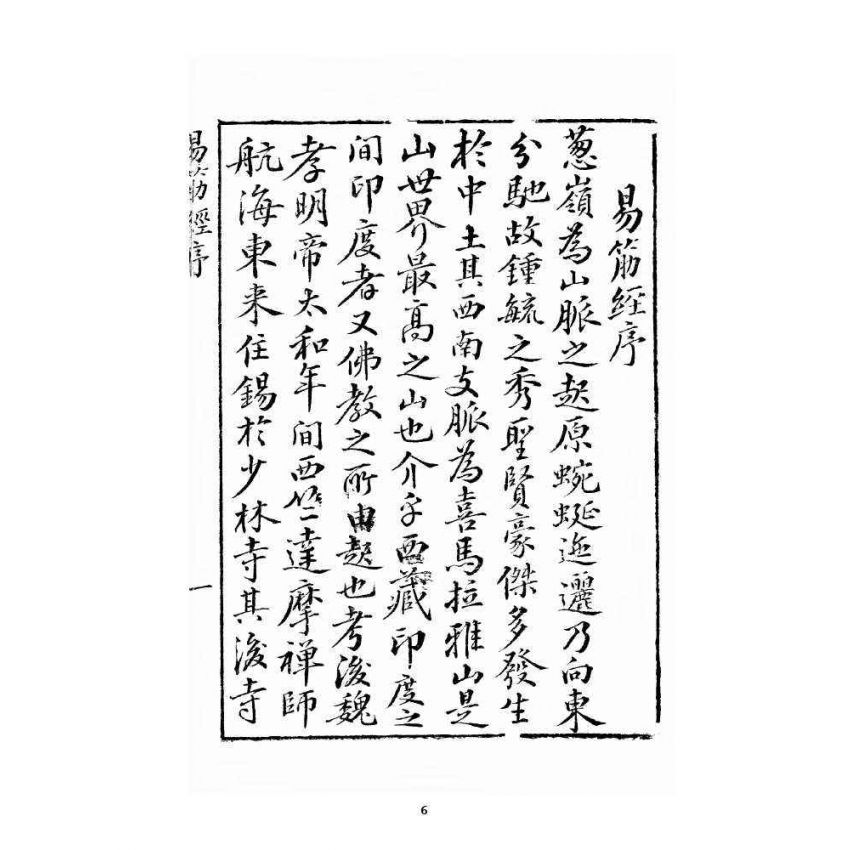 易筋經序
葱嶺為山脈之起原蜿蜒迤邐乃向東
分馳故鍾毓之秀聖賢豪傑多發生
於中土其西南支脈為喜馬拉雅山是
山世界最高之山也介乎西藏印度之
間印度者又佛教之所由起也考後魏
孝明帝太和年間西竺達摩禪師
航海東来住錫於少林寺其後寺
易筋經序
一
6